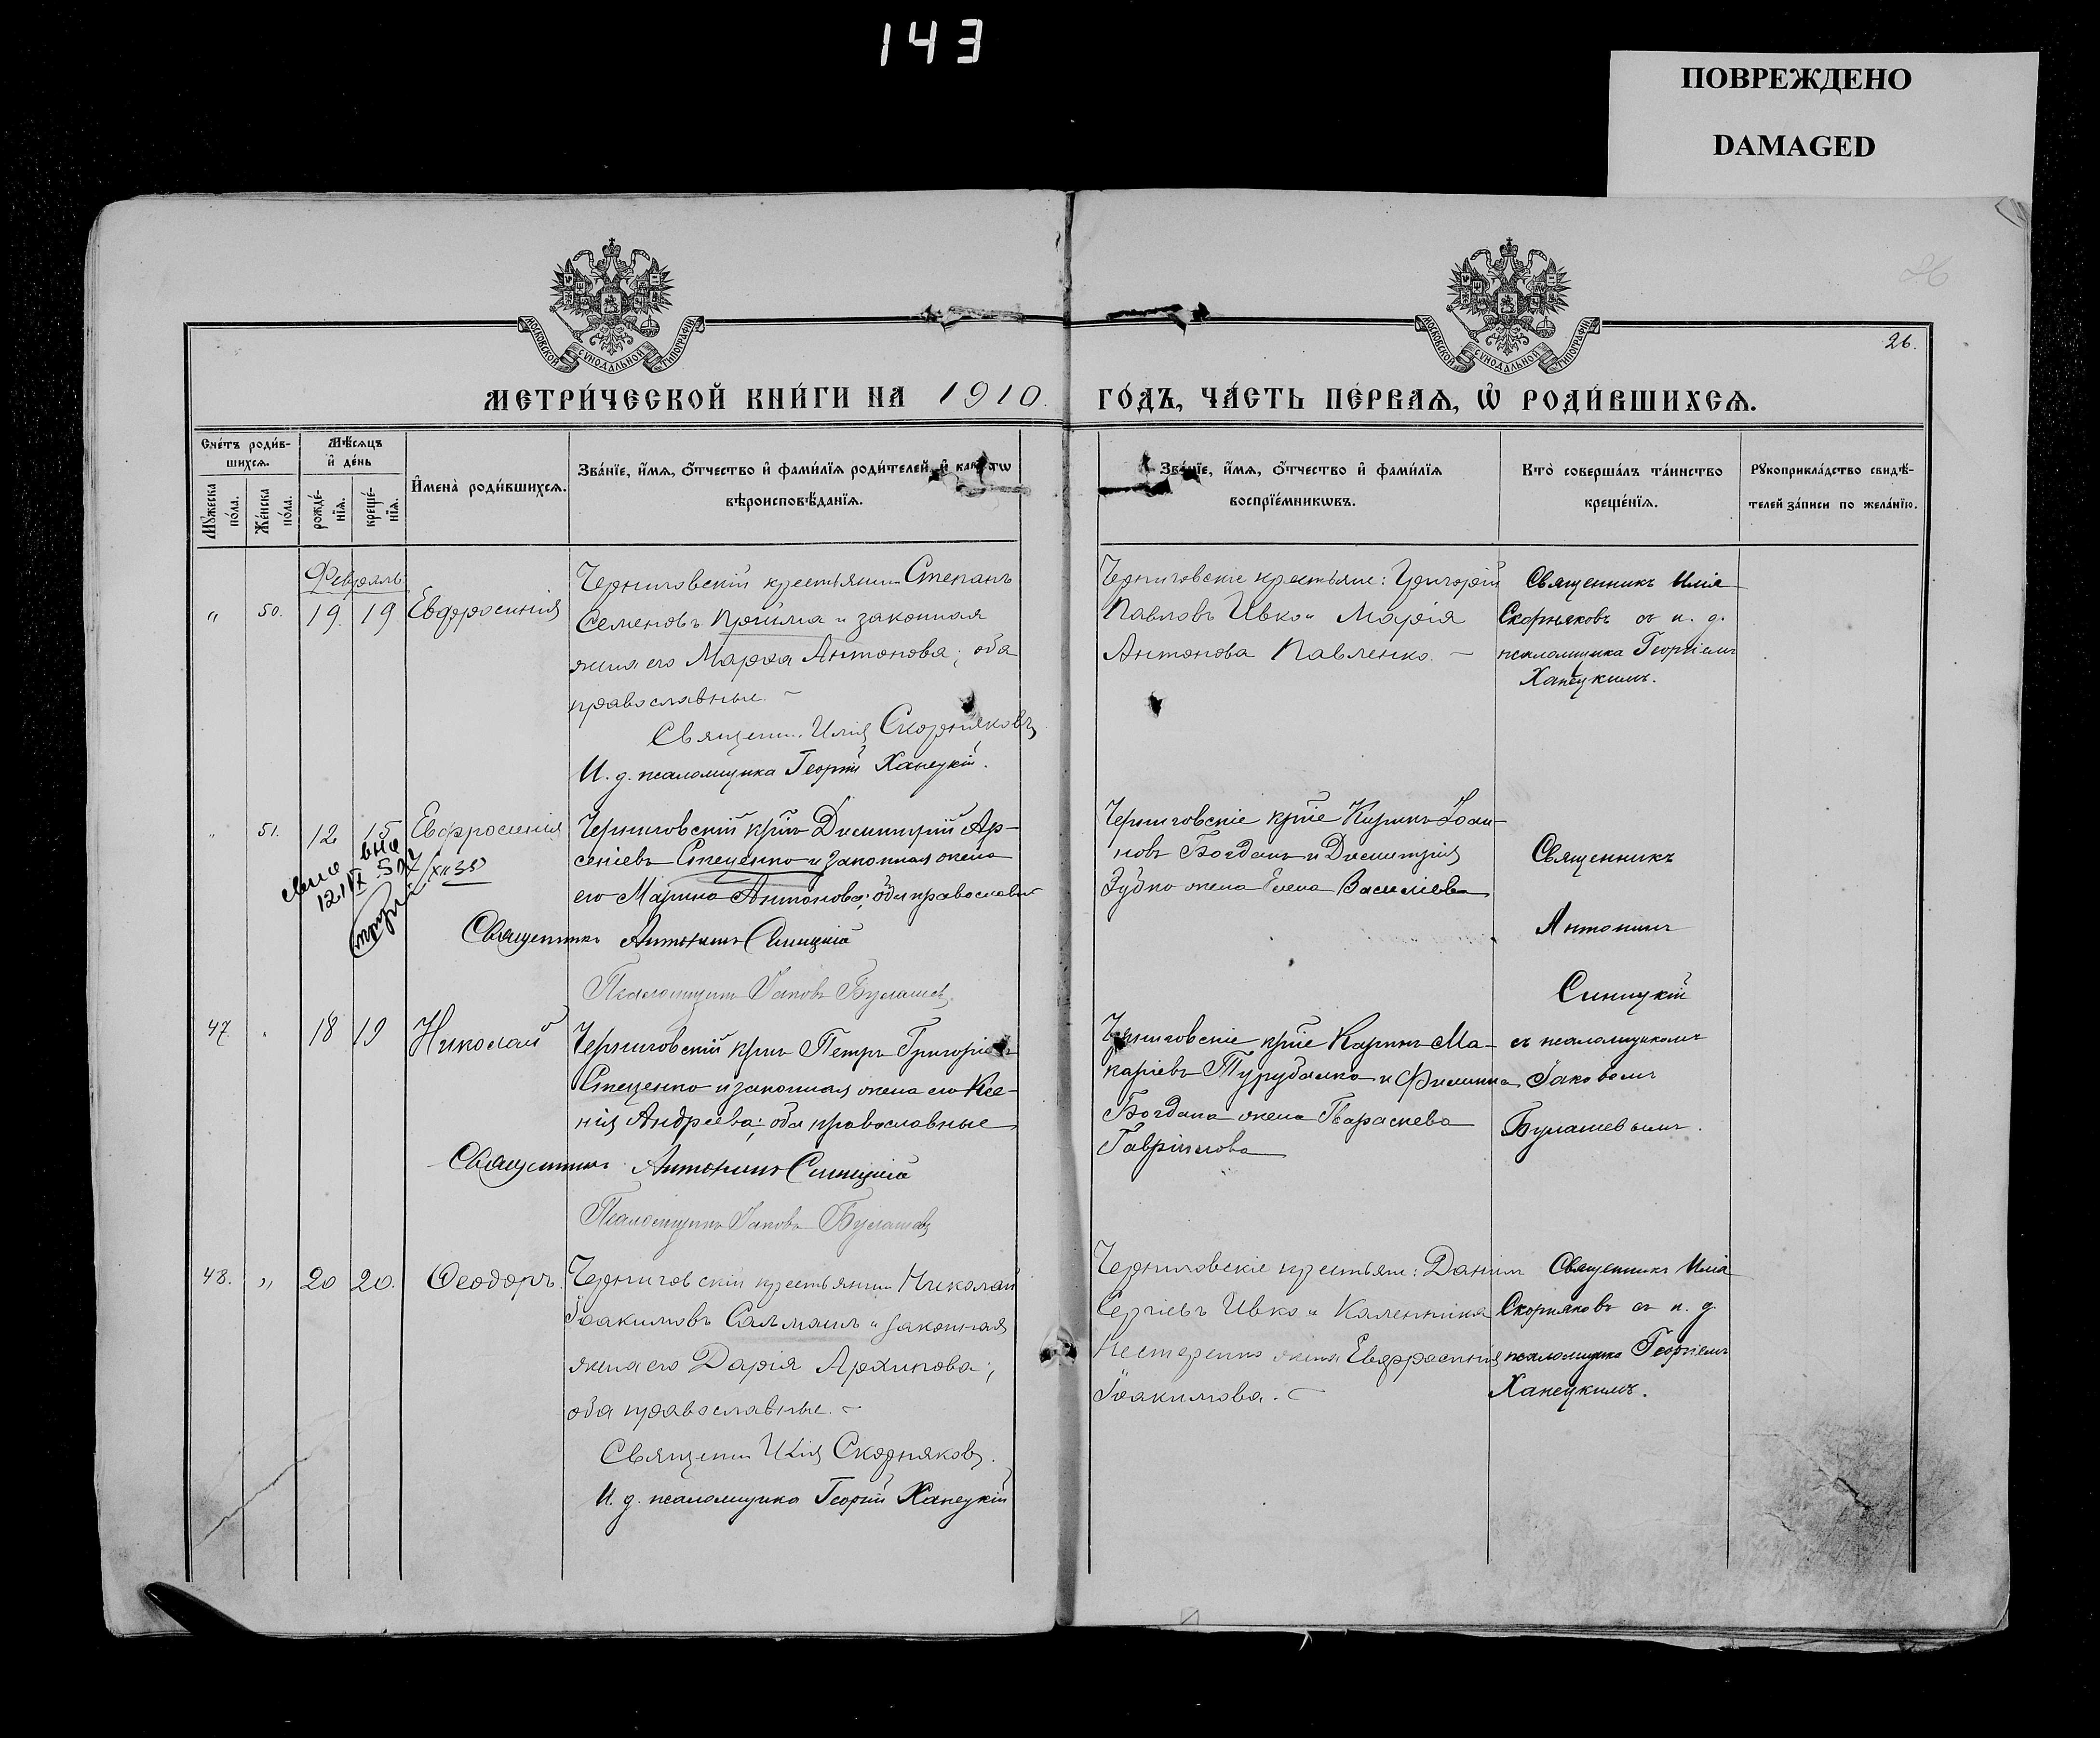 143
ПОВРЕЖДЕНО
DAMAGED
МОСКОВСКОЙ СѴНОДАЛЬНОЙ ТИПОГРАФІИ
МОСКОВСКОЙ СѴНОДАЛЬНОЙ ТИПОГРАФІИ
26.
МЕТРИ́ЧЕСКОЙ КНИ́ГИ НА 1910. ГО́ДЪ, ЧА́СТЬ ПЕ́РВАѦ, Ѡ҆ РОДИ́ВШИХСѦ.
Сче́тъ роди́в-
шихсѧ.
Мѣ́сѧцъ
и҆ де́нь
Мꙋ́жеска
по́ла.
Же́нска
по́ла.
рожде́-
нїѧ.
креще́-
нїѧ.
И҆мена̀ роди́вшихсѧ.
Зва́нїе, и҆́мѧ, ѻ҆́тчество и҆ фами́лїѧ роди́телей, и҆
вѣроисповѣ́данїѧ.
Зва́нїе, и҆́мѧ, ѻ҆́тчество и҆ фами́лїѧ
воспрїе́мникѡвъ.
Кто̀ соверша́лъ та́инство
креще́нїѧ.
Рꙋкоприкла́дство свидѣ́-
телей за́писи по жела́нїю.
Февраль
" 50. 19. 19 Евфросинія
Черниговскій крестьянинъ Степанъ
Семеновъ Прийма и законная
жена его Марѳа Антонова; оба
православные. ~
Священ. Илія Скорняковъ
И. д. псаломщика Георгій Ханецкій.
Черниговскіе крестьяне: Григорій
Павловъ Ивко и Марія
Антонова Павленко. ~
Священникъ Илія
Скорняковъ съ и. д.
псаломщика Георгіемъ
Ханецкимъ.
" 51. 12 15 Евфросинія
Черниговскій кр̃нъ Димитрій Ар-
сеніевъ Стеценко и законная жена
его Марина Антонова; оба православн
Священникъ Антонинъ Синицкій
Псаломщикъ Іаковъ Булашев
Черниговскіе кр̃не Киринъ Іоан-
новъ Богданъ и Димитрія
Зубко жена Елена Василіева
Священникъ
Антонинъ
Синицкій
съ псаломщикомъ
Іаковомъ
Булашевымъ.
47. " 18 19 Николай
Черниговскій кр̃нъ Петръ Григоріевъ
Стеценко и законная жена его Ксе-
нія Андреева; оба православные
Священникъ Антонинъ Синицкій
Псаломщикъ Іаковъ Булашевъ
Черниговскіе кр̃не Каринъ Ма-
каріевъ Турубалко и Филиппа
Богдана жена Параскева
Гавріилова
48. " 20 20. Ѳеодоръ.
Черниговскій крестьянинъ Николай
Іоакимовъ Сальманъ и законная
жена его Дарія Архипова;
оба православные. ~
Священ. Илія Скорняковъ.
И. д. псаломщика Георгій Ханецкій
Черниговскіе крестьяне: Даніилъ
Сергіевъ Ивко и Каленника
Нестеренко жена Евфросинія
Іоакимова. ~
Священникъ Илія
Скорняковъ съ и. д.
псаломщика Георгіемъ
Ханецкимъ.